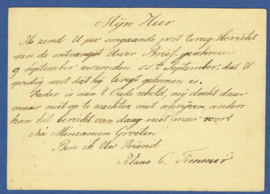 Mijn Heer
Ik zend U per omgaande post terug bericht
van de ontvangst Uwer Brief, geschreven
9 September verzonden 11 September; dat U
spoedig weet dat hij terugt gekomen is.
Veder is aan 't Oude schild, mij dacht daar
maar niet op te wachten met schrijven, anders
kan het bericht van daag niet meer voort
Na Minzamen Groeten
Ben ik Uw Vriend
Klaas C. Timmer